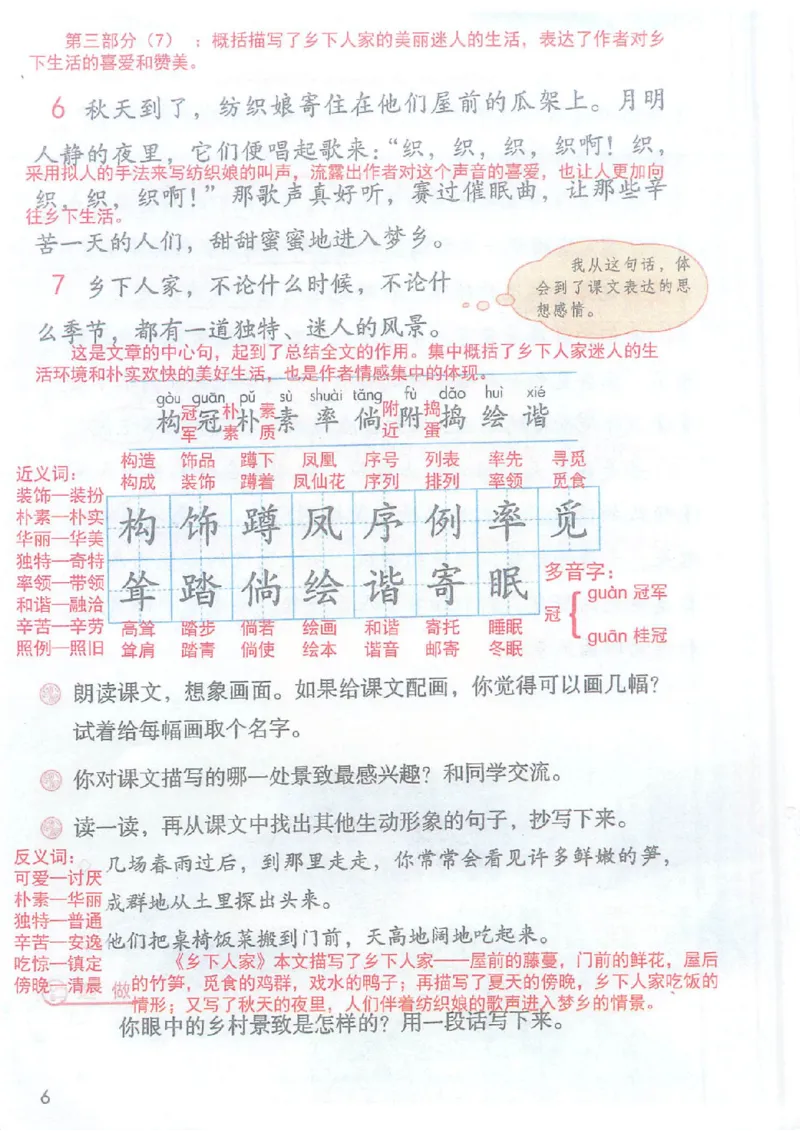 第三部分（7）：概括描写了乡下人家的美丽迷人的生活，表达了作者对乡
下生活的喜爱和赞美。
6 秋天到了，纺织娘寄住在他们屋前的瓜架上。月明
人静的夜里，它们便唱起歌来：“织，织，织，织啊！织，
采用拟人的手法来写纺织娘的叫声，流露出作者对这个声音的喜爱，也让人更加向
织，织，织啊！”那歌声真好听，赛过催眠曲，让那些辛
往乡下生活。
苦一天的人们，甜甜蜜蜜地进入梦乡。
7 乡下人家，不论什么时候，不论什
我从这句话，体
会到了课文表达的思
想感情。
么季节，都有一道独特、迷人的风景。
这是文章的中心句，起到了总结全文的作用。集中概括了乡下人家迷人的生
活环境和朴实欢快的美好生活，也是作者情感集中的体现。
gòu guān pǔ sù shuài tǎng fù dǎo huì xié
冠 朴 素 附 捣
构 冠 朴 素 率 倘 附 捣 绘 谐
军 素 质 近 蛋
构造 饰品 蹲下 凤凰 序号 列表 率先 寻觅
构成 装饰 蹲着 凤仙花 序列 排列 率领 觅食
构 饰 蹲 凤 序 例 率 觅
耸 踏 倘 绘 谐 寄 眠
高耸 踏步 倘若 绘画 和谐 寄托 睡眠
耸肩 踏青 倘使 绘本 谐音 邮寄 冬眠
近义词：
装饰—装扮
朴素—朴实
华丽—华美
独特—奇特
率领—带领
和谐—融洽
辛苦—辛劳
照例—照旧
多音字：
冠
guàn 冠军
guān 桂冠
朗读课文，想象画面。如果给课文配画，你觉得可以画几幅？
试着给每幅画取个名字。
你对课文描写的哪一处景致最感兴趣？和同学交流。
读一读，再从课文中找出其他生动形象的句子，抄写下来。
几场春雨过后，到那里走走，你常常会看见许多鲜嫩的笋，
成群地从土里探出头来。
他们把桌椅饭菜搬到门前，天高地阔地吃起来。
反义词：
可爱—讨厌
朴素—华丽
独特—普通
辛苦—安逸
吃惊—镇定
傍晚—清晨
《乡下人家》本文描写了乡下人家——屋前的藤蔓，门前的鲜花，屋后
的竹笋，觅食的鸡群，戏水的鸭子；再描写了夏天的傍晚，乡下人家吃饭的
情形；又写了秋天的夜里，人们伴着纺织娘的歌声进入梦乡的情景。
做
你眼中的乡村景致是怎样的？用一段话写下来。
6